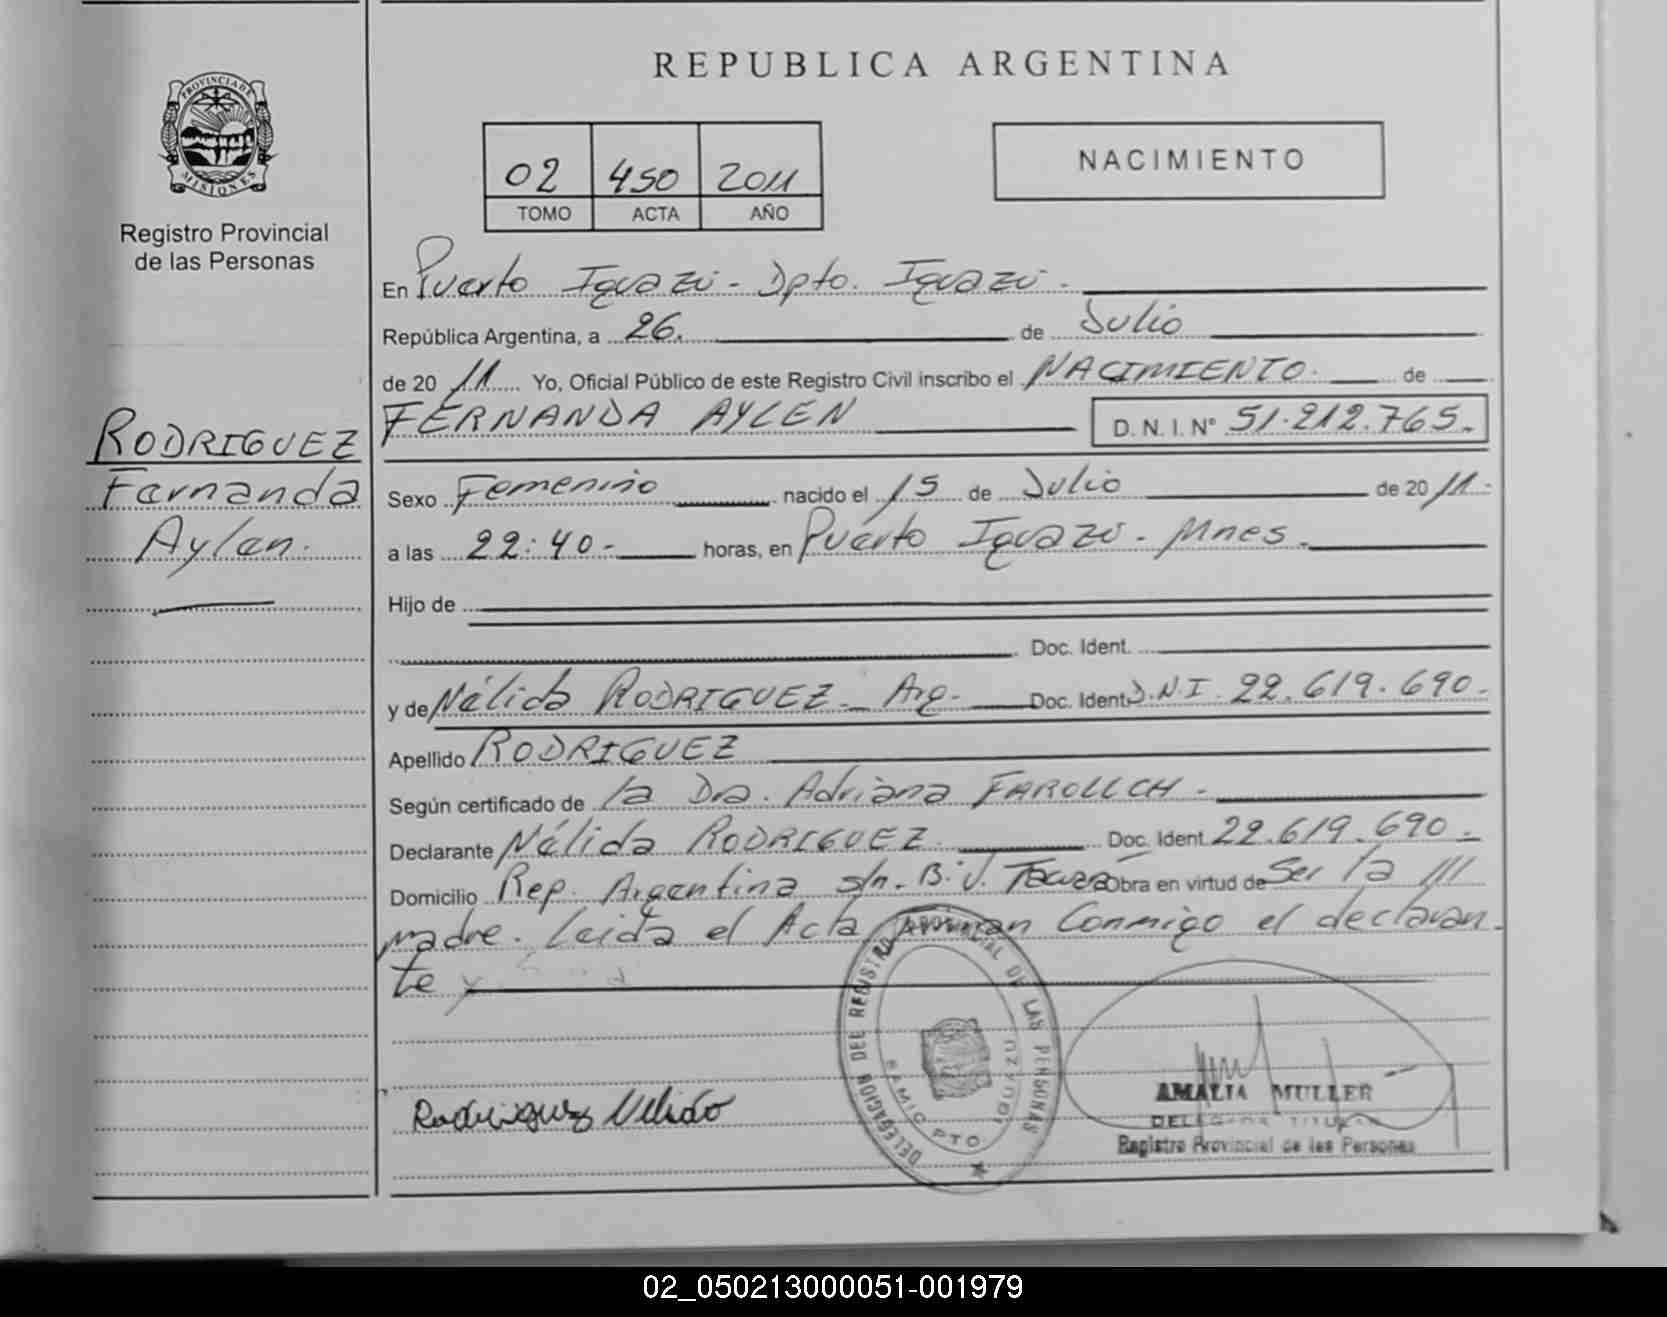 REPUBLICA ARGENTINA
PROVINCIA DE
MISIONES
Registro Provincial
de las Personas
02 450 2011
TOMO ACTA AÑO
NACIMIENTO
En Puerto Iguazú - Dpto. Iguazú -
República Argentina, a 26. de Julio
de 20 11 Yo, Oficial Público de este Registro Civil inscribo el NACIMIENTO. de
FERNANDA AYLEN D. N. I. N° 51.212.765.
RODRIGUEZ
Fernanda
Aylen.
Sexo Femenino nacido el 15 de Julio de 20 11.
a las 22:40- horas, en Puerto Iguazú - Mnes.
Hijo de
Doc. Ident.
y de Nélida RODRIGUEZ - Arg. Doc. Ident. D.N.I. 22.619.690.
Apellido RODRIGUEZ
Según certificado de la Dra. Adriana
Declarante Nélida RODRIGUEZ. Doc. Ident. 22.619.690.
Domicilio Rep. Argentina s/n. B. J. Obra en virtud de Ser la
madre. Leida el Acta Conmigo el declaran-
te y
DELEGACION DEL REGISTRO PROVINCIAL DE LAS PERSONAS
PTO. IGUAZU
Rodriguez Nelida
AMALIA MULLER
DELEGADA TITULAR
Registro Provincial de las Personas
02_050213000051-001979